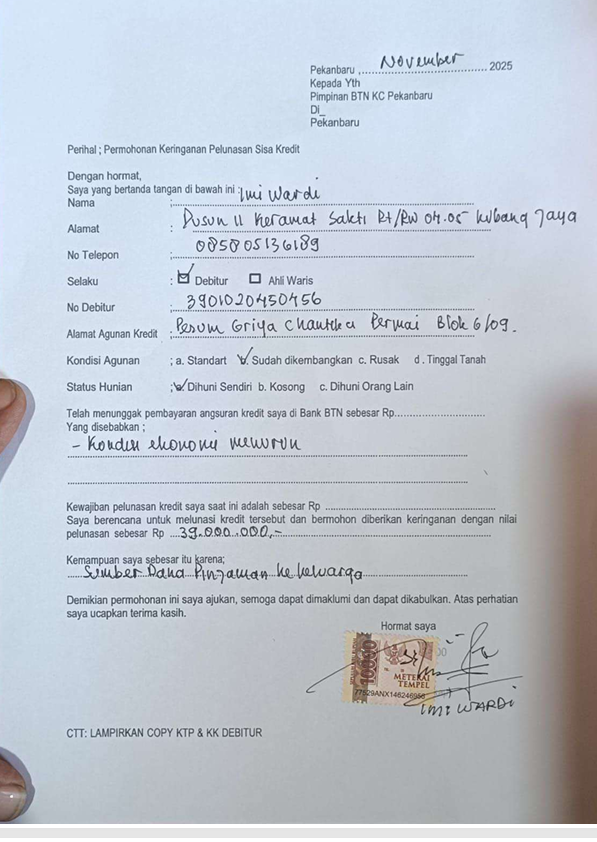 Pekanbaru ,......November...... 2025
Kepada Yth
Pimpinan BTN KC Pekanbaru
Di_
Pekanbaru
Perihal ; Permohonan Keringanan Pelunasan Sisa Kredit
Dengan hormat,
Saya yang bertanda tangan di bawah ini :
Nama : Imi Wardi
Alamat : Dusun II Keramat Sakti Rt/RW 04.05 Kubang Jaya
No Telepon : 085805136189
Selaku : ☑ Debitur ☐ Ahli Waris
No Debitur : 3901020450456
Alamat Agunan Kredit : Perum Griya Chantika Permai Blok G/09.
Kondisi Agunan ; a. Standart b. Sudah dikembangkan c. Rusak d . Tinggal Tanah
Status Hunian ; a. Dihuni Sendiri b. Kosong c. Dihuni Orang Lain
Telah menunggak pembayaran angsuran kredit saya di Bank BTN sebesar Rp........................
Yang disebabkan ;
- Kondisi ekonomi menurun
Kewajiban pelunasan kredit saya saat ini adalah sebesar Rp ................................................
Saya berencana untuk melunasi kredit tersebut dan bermohon diberikan keringanan dengan nilai
pelunasan sebesar Rp ....39.000.000,-................................................
Kemampuan saya sebesar itu karena;
Sumber Dana Pinjaman ke keluarga
Demikian permohonan ini saya ajukan, semoga dapat dimaklumi dan dapat dikabulkan. Atas perhatian
saya ucapkan terima kasih.
Hormat saya
10000
METERAI
TEMPEL
77629ANX146246956
IMI WARDI
CTT: LAMPIRKAN COPY KTP & KK DEBITUR